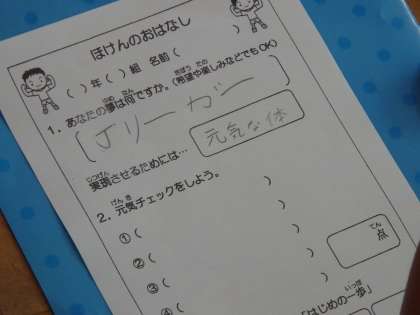 ほけんのおはなし
( )年( )組 名前( )
1. あなたの夢は何ですか。(希望や楽しみなどでもOK)
(Jリーガー )
実現させるためには… 元気な体
2. 元気チェックをしよう。
①( )
②( )
③( )
④(
点
「はじめの一歩」